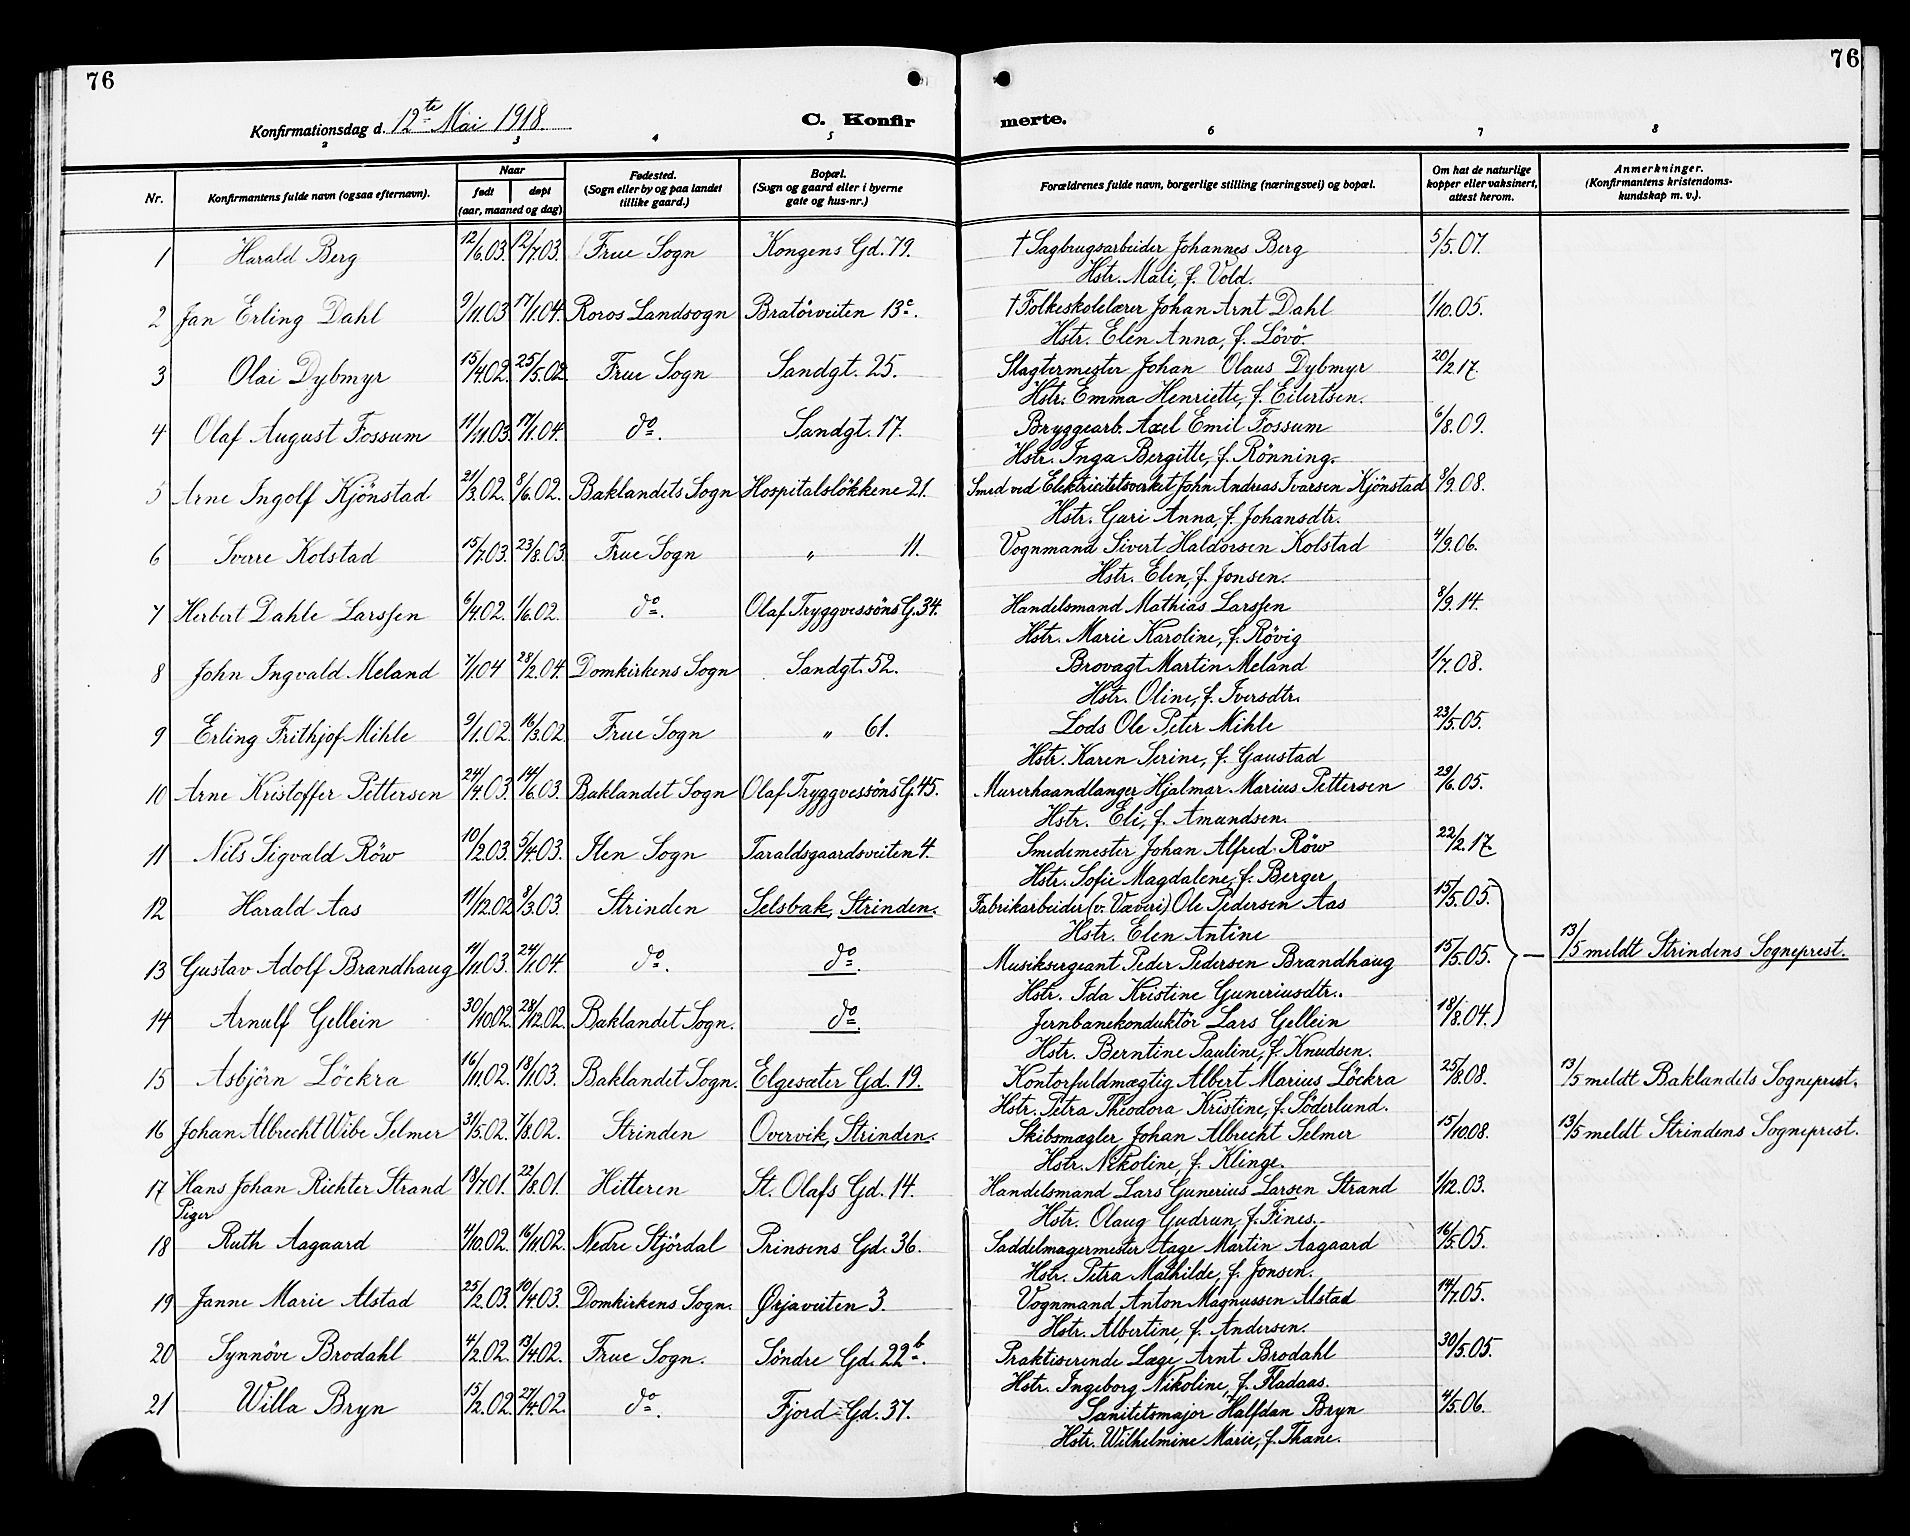 76
76
Konfirmationsdag d. 12te Mai 1918.
C. Konfirmerte.
2 3 4 5 6 7 8
Nr. Konfirmantens fulde navn (ogsaa efternavn). Naar født døpt (aar, maaned og dag) Fødested. (Sogn eller by og paa landet tillike gaard.) Bopæl. (Sogn og gaard eller i byerne gate og hus-nr.) Forældrenes fulde navn, borgerlige stilling (næringsvei) og bopæl. Om hat de naturlige kopper eller vaksinert, attest herom. Anmerkninger. (Konfirmantens kristendoms-kundskap m. v.).
1 Harald Berg 12/6.03. 12/7.03. Frue Sogn Kongens Gd. 79. † Sagbrugsarbeider Johannes Berg 5/5.07.
Hstr. Mali, f. Vold.
2 Jan Erling Dahl 9/11.03 17/1.04. Roros Landsogn Bratörveiten 13c. † Folkeskolelærer Johan Arnt Dahl 1/10.05.
Hstr. Elen Anna, f. Lövö.
3 Olai Dybmyr 15/4.02. 25/5.02. Frue Sogn Sandgt. 25. Slagtermester Johan Olaus Dybmyr 20/2.17.
Hstr. Emma Henriette, f. Eilertsen.
4 Olaf August Fossum 11/11.03. 17/1.04. do. Sandgt. 17. Bryggearb. Axel Emil Fossum 6/8.09.
Hstr. Inga Bergitte, f. Rönning.
5 Arne Ingolf Kjönstad 21/3.02. 8/6.02. Baklandets Sogn Hospitalslökkene 21. Smed ved Elektricitetsverket John Andreas Ivarsen Kjönstad 8/9.08.
Hstr. Guri Anna, f. Johansdtr.
6 Sverre Kolstad 15/7.03. 23/8.03. Frue Sogn " 11. Vognmand Sivert Haldorsen Kolstad 4/9.06.
Hstr. Elen, f. Jonsen.
7 Herbert Dahle Larssen 6/4.02. 1/6.02. do. Olaf Tryggvessöns G. 34. Handelsmand Mathias Larssen 8/9.14.
Hstr. Marie Karoline, f. Rövig
8 John Ingvald Meland 7/1.04 28/2.04. Domkirkens Sogn Sandgt. 52. Brovagt Martin Meland 1/7.08.
Hstr. Oline, f. Iversdtr.
9 Erling Frithjof Mihle 9/1.02. 16/3.02. Frue Sogn " 61. Lods Ole Peter Mihle 23/5.05.
Hstr. Karen Serine, f. Gaustad
10 Arne Kristoffer Pettersen 24/4.03. 14/6.03. Baklandet Sogn Olaf Tryggvessöns G. 45. Murerhaandlanger Hjalmar Marius Pettersen 29/6.05.
Hstr. Eli, f. Amundsen.
11 Nils Sigvald Röw 10/2.03. 5/4.03. Ilen Sogn Taraldsgaardsveiten 4. Smedemester Johan Alfred Röw 22/2.17
Hstr. Sofie Magdalene, f. Berger
12 Harald Aas 11/12.02 8/3.03. Strinden Selsbak, Strinden. Fabrikarbeider (v. Væveri) Ole Pedersen Aas 15/5.05.
Hstr. Elen Antine
13 Gustav Adolf Brandhaug 11/11.03. 24/1.04. do. do. Musiksergeant Peder Pedersen Brandhaug 15/5.05. — 13/5 meldt Strindens Sogneprest.
Hstr. Ida Kristine Guneriusdtr.
14 Arnulf Gellein 30/10.02. 28/12.02. Baklandet Sogn. do. Jernbanekonduktör Lars Gellein 18/8.04.
Hstr. Berntine Pauline, f. Knudsen.
15 Asbjörn Löckra 16/11.02. 18/1.03. Baklandet Sogn. Elgesæter Gd. 19. Kontorfuldmægtig Albert Marius Löckra 25/8.08. 13/5 meldt Baklandets Sogneprest.
Hstr. Petra Theodora Kristine, f. Söderlund.
16 Johan Albrecht Wibe Selmer 31/5.02. 7/8.02. Strinden Overvik, Strinden. Skibsmægler Johan Albrecht Selmer 15/10.08. 13/5 meldt Strindens Sogneprest.
Hstr. Nikoline, f. Klinge.
17 Hans Johan Richter Strand 13/7.01. 22/8.01. Hitteren St. Olafs Gd. 14. Handelsmand Lars Gunerius Larsen Strand 1/12.03.
Hstr. Olaug Gudrun, f. Fines.
Piger
18 Ruth Aagaard 4/10.02. 16/11.02. Nedre Stjördal Prinsens Gd. 36. Saddelmagermester Aage Martin Aagaard 16/5.05.
Hstr. Petra Mathilde, f. Jonsen.
19 Janne Marie Alstad 25/2.03. 10/4.03. Domkirkens Sogn. Ørjaveiten 3. Vognmand Anton Magnussen Alstad 14/7.05.
Hstr. Albertine, f. Andersen.
20 Synnöve Brodahl 4/2.02. 13/4.02. Frue Sogn. Söndre Gd. 22b. Praktiserende Læge Arnt Brodahl 30/5.05.
Hstr. Ingeborg Nikoline, f. Fladaas.
21 Willa Bryn 15/2.02. 27/4.02. do. Fjord-Gd. 37. Sanitetsmajor Halfdan Bryn 4/5.06.
Hstr. Wilhelmine Marie, f. Thane.